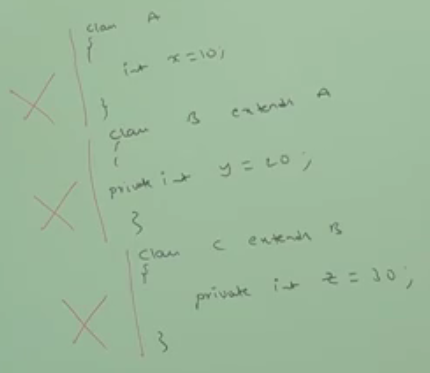 class A
{
int x=10;
}
class B extends A
{
private int y = 20;
}
class C extends B
{
private int z = 30;
}